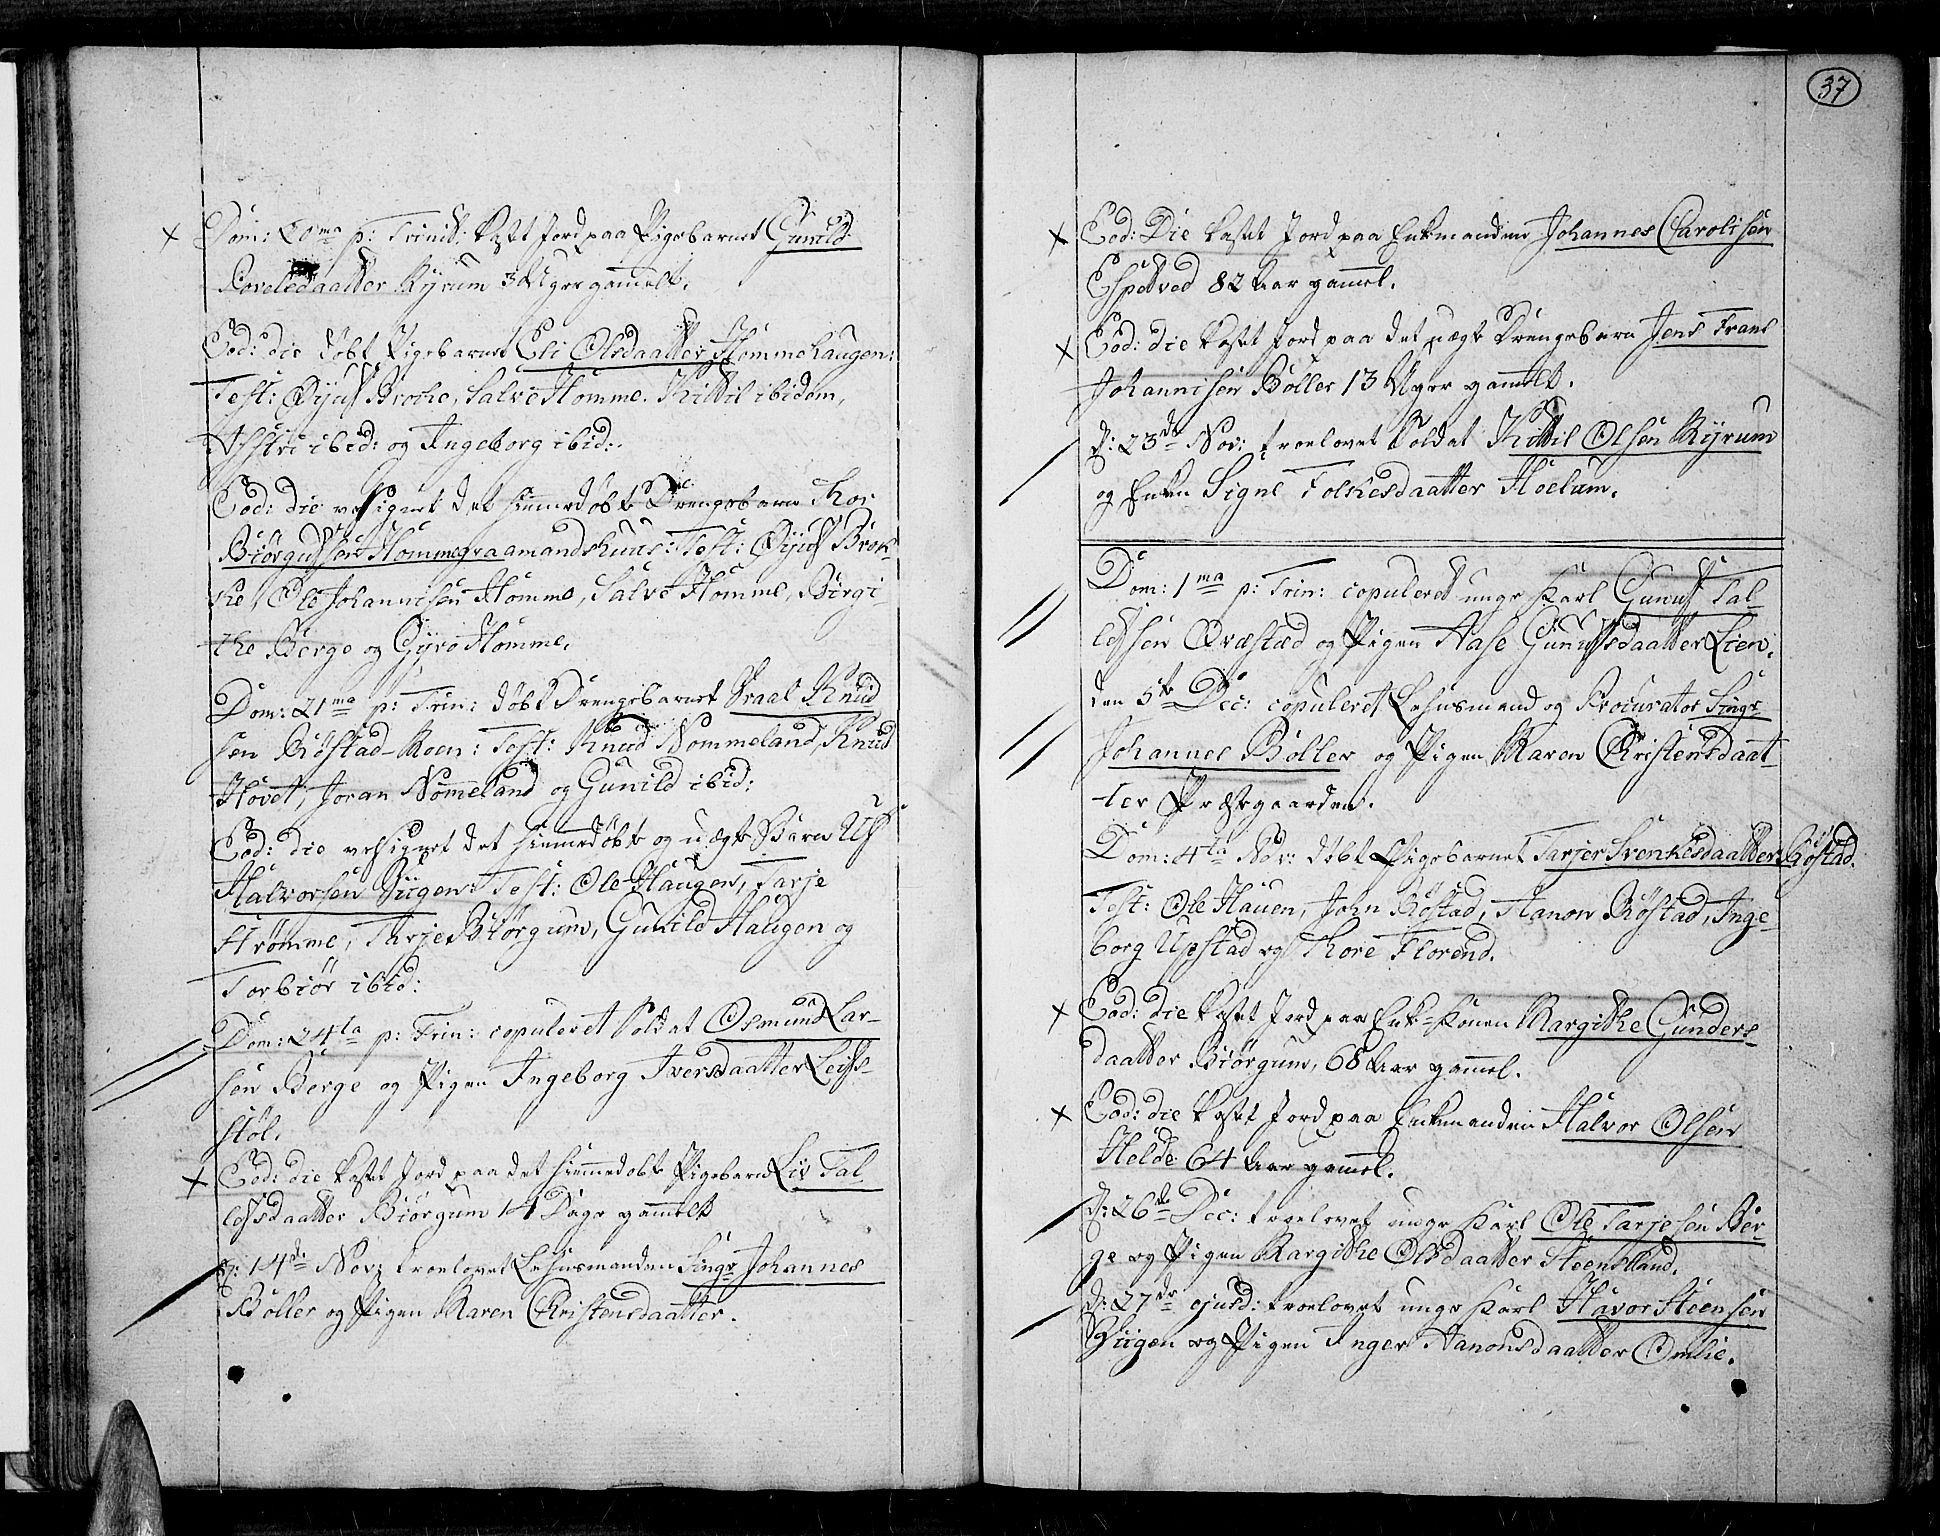 Dom: 20ma p: Trinit: kastet Jord paa Pigebarnet Gunild
Povelsdaatter Ryrum 3 Uger gammelt.
Eod: die døbt Pigebarnet Eli Olsdaatter Hommehaugen:
Test: Øyuf Brocke, Salve Homme. Kittil ibidem,
Asstri ibid: og Ingeborg ibid:.
Eod: die velsignet det hiemmedøbte Drengebarn Thor
Biørgufsen Hommegraamandshuus: Test: Øyuf Brok-
ke, Ole Johannisen Homme, Salve Homme, Birgi-
the Berge og Gyro Homme.
Dom: 21ma p: Trin: døbt Drengebarnet Vraal Knud
sen Røstad-Moen: Test: Knud Nommeland, Knud
Hovet, Joran Nommeland og Gunild ibid:
Eod: die velsignet det hiemmedøbte og uægte Barn Ulf
Halvorsen Viigen: Test: Ole Haugen, Tarje
Strømme, Tarje Biørgum, Gunild Haugen og
Torbiør ibid:
Dom: 24ta p: Trin: copuleret Soldat Osmund Lar-
sen Berge og Pigen Ingeborg Iversdaatter Leifs-
støl.
Eod: die kastet Jord paa det hiemmedøbte Pigebarn Liv Tal
lefsdaatter Biørgum 14 Dage gammelt
d: 14de Nov: troelovet Lehnsmanden Sing: Johannes
Bøller og Pigen Maren Christensdaatter.
37
Eod: Die kastet Jord paa Enkemanden Johannes Carolisen
Espetved 82 Aar gammel.
Eod: die kastet Jord paa det uægte Drengebarn Jens Frans
Johannisen Bøller 13 Uger gammelt.
d: 23de Nov: troelovet Soldat Kittil Olsen Ryrum
og Enken Signe Folkesdaatter Hoelum.
Dom: 1ma p: Trin: copuleret unge Karl Gunuf Tal-
lefsen Qvæstad og Pigen Aase Gunufsdaatter Lien.
den 5te Dec: copuleret Lehnsmand og Procurator Singr
Johannes Bøller og Pigen Maren Christensdaat-
ter Præstegaarden.
Dom: 4ta Nov: døbt Pigebarnet Tarjer Svenkesdaatter Gøstad.
Test: Ole Hauen, John Røstad, Hanon Røstad, Inge-
borg Upstad og Thore Florend.
Eod: die kastet Jord paa Enke-Konen Margithe Gunders-
daatter Biørgum, 68 Aar gammel.
Eod: die kastet Jord paa Enkemanden Halvor Olsen
Helde 64 Aar gammel.
d: 26de Dec: troelovet unge Karl Ole Tarjesen Ber-
ge og Pigen Margithe Olsdaatter Steensland.
d: 27de ejusd: troelovet unge Karl Havor Steensen
Viigen og Pigen Inger Aanonsdaatter Omlie.